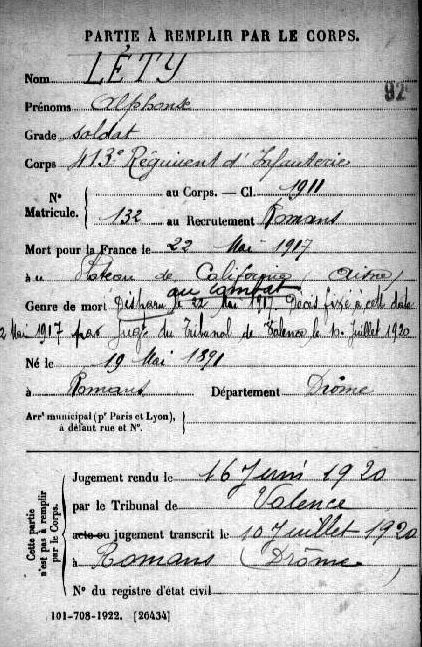 PARTIE À REMPLIR PAR LE CORPS.
Nom LÉTY
92
Prénoms Alphonse
Grade soldat
Corps 413e Régiment d'Infanterie
N° Matricule. { au Corps. — Cl. 1911
132 au Recrutement Romans
Mort pour la France le 22 Mai 1917
à u Plateau de Californie (Aisne)
au combat
Genre de mort Disparu le 22 Mai 1917. Décès fixé à cette date
2 Mai 1917 par Juge du Tribunal de Valence le 10 Juillet 1920
Né le 19 Mai 1891
à Romans Département Drôme
Arr' municipal (p' Paris et Lyon), à défaut rue et N°.
Cette partie n'est pas à remplir par le Corps.
Jugement rendu le 16 Juin 1920
par le Tribunal de Valence
acte ou jugement transcrit le 10 Juillet 1920
à Romans (Drôme)
N° du registre d'état civil
101-708-1922. [26434]